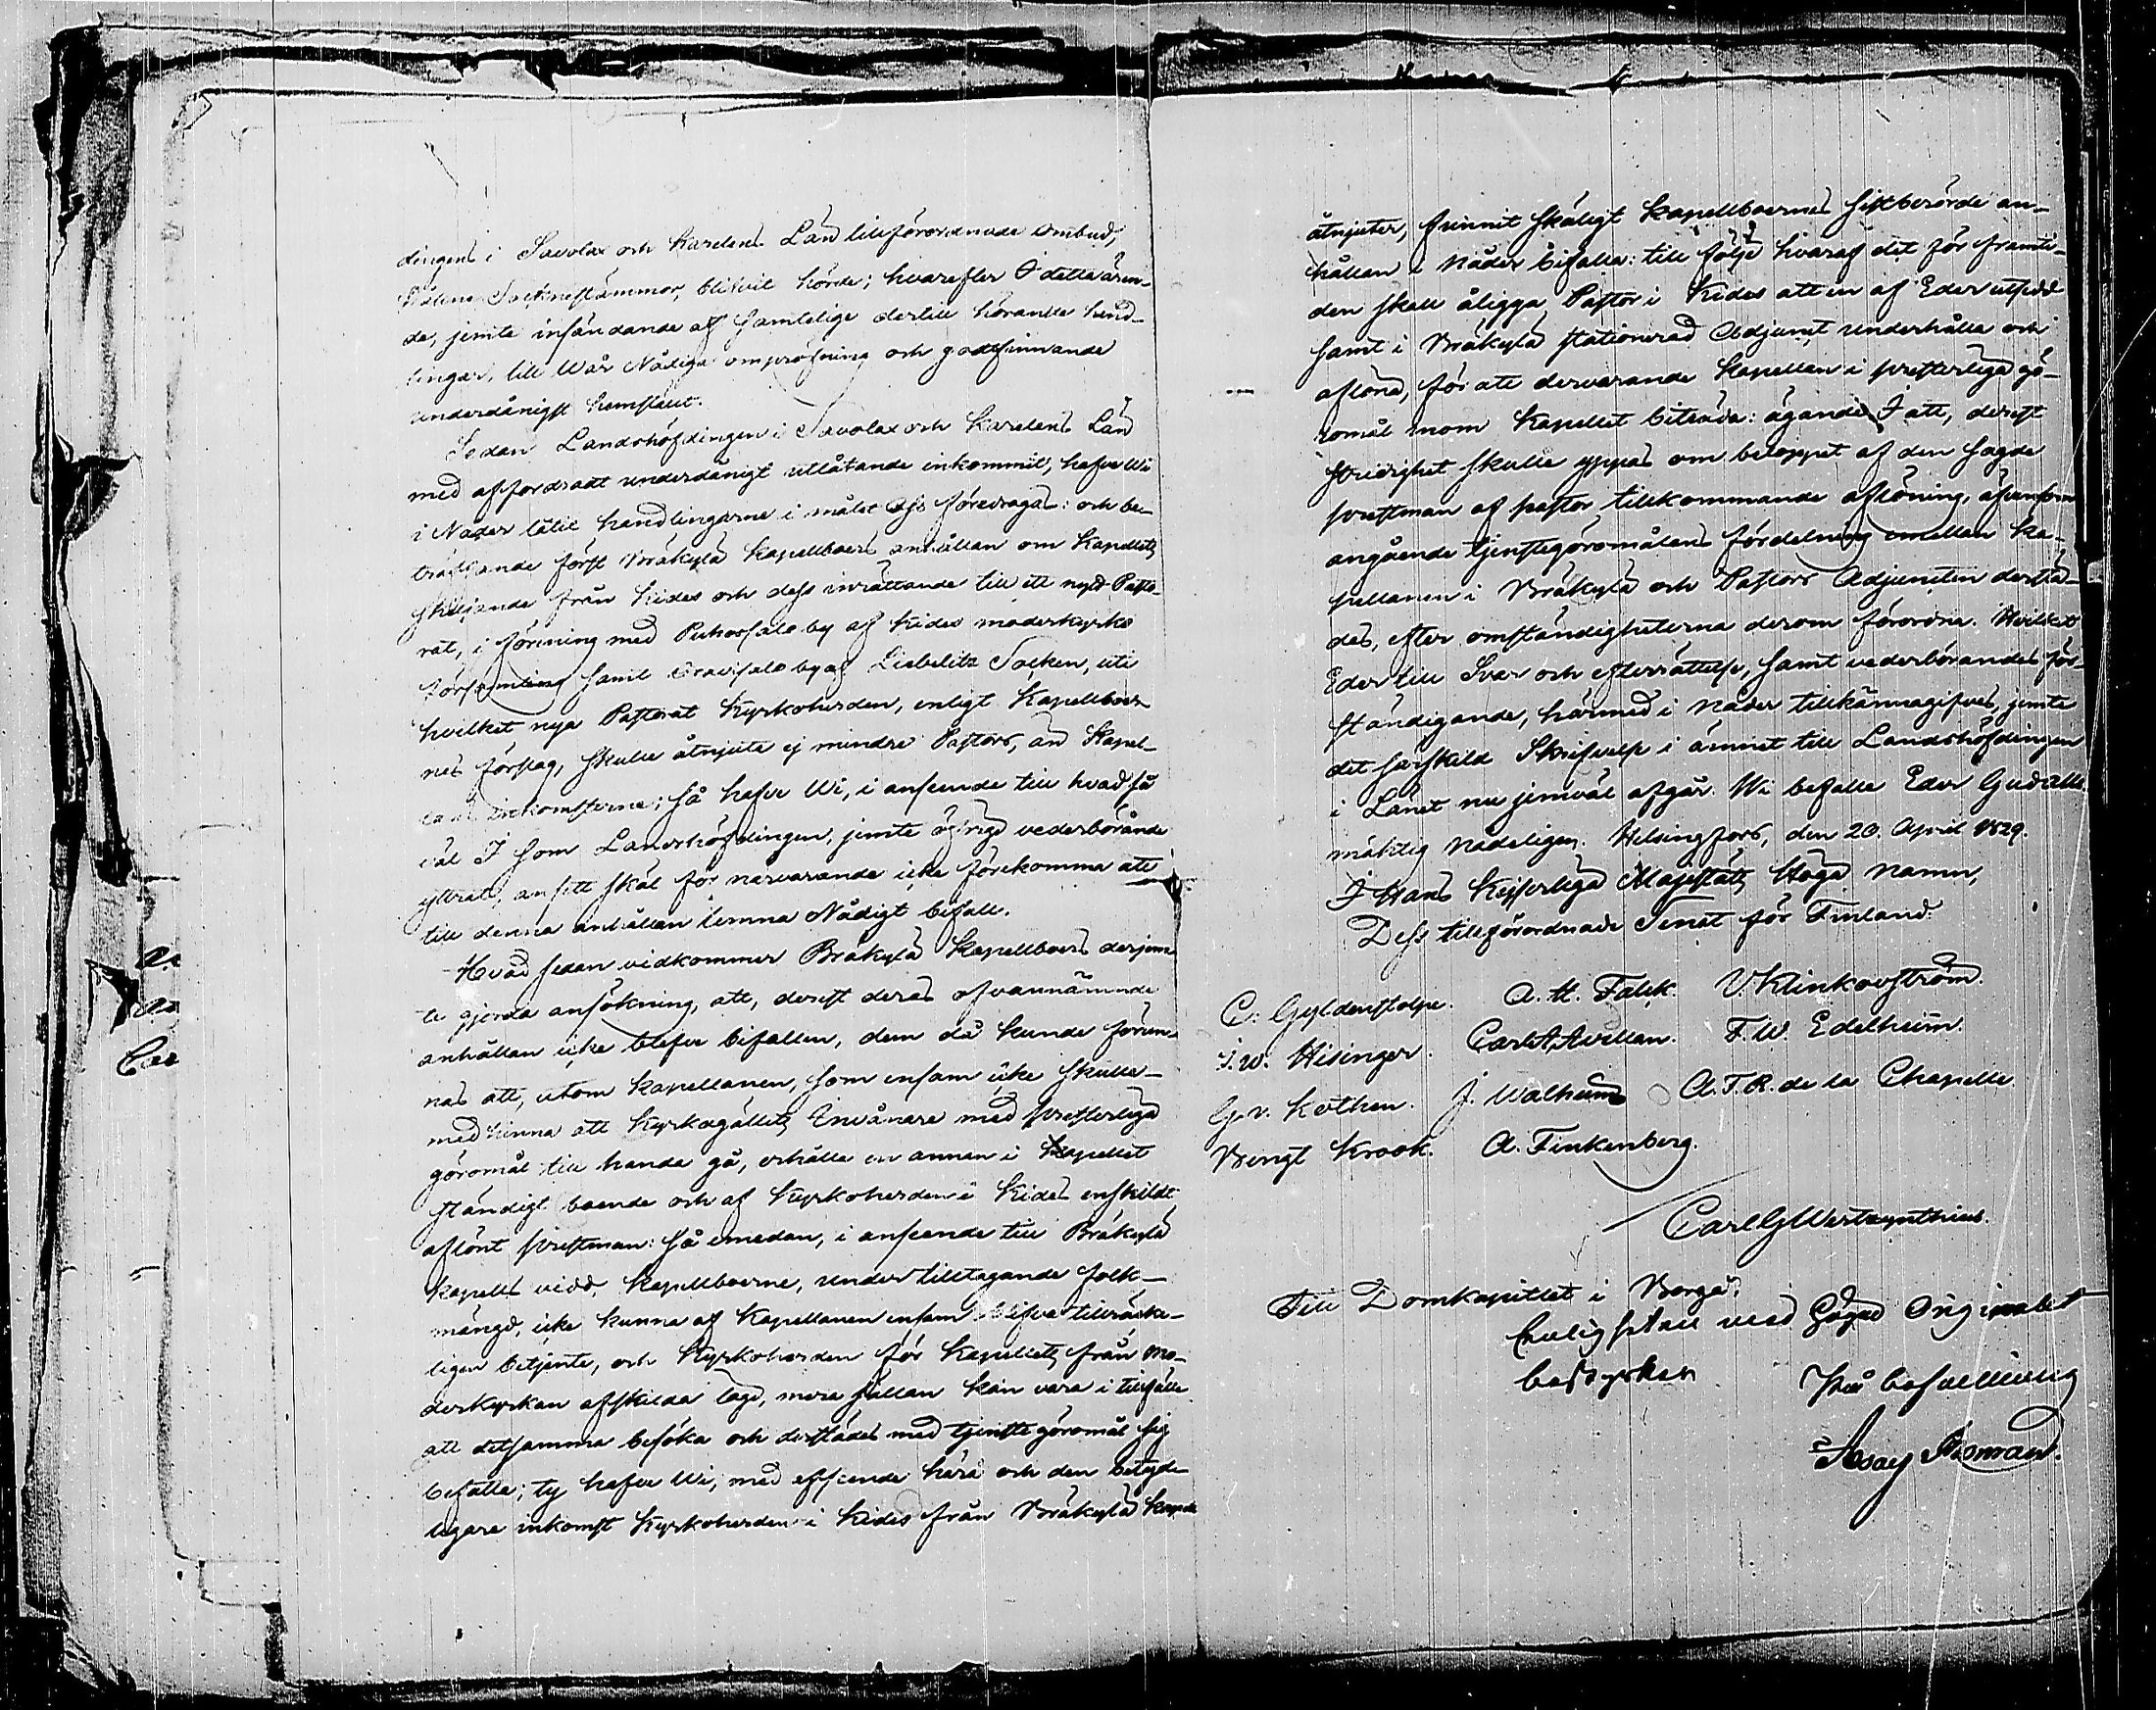 dingens i Savolax och Karelens Län tillförordnade ombud,
hållne Sockenstämmor, blifvit hörde; hvarefter I detta ären-
de, jemte insändande af samtelige dertill hörande hand-
lingar, till Wår Nådiga ompröfning och godtfinnande
underdånigst hemstält.
Sedan Landshöfdingen i Savolax och Karelens Län
med affordradt underdånigt utlåtande inkommit, hafve Wi
i Nåder låtit handlingarne i målet Oss föredragas: och be-
träffande först Bräkylä Kapellboers anhållan om Kapellets
skiljande från Kides och dess inrättande till ett nytt Pasto-
rat, i förening med Puhossalo by af Kides moderkyrko
församling samt Oravisalo by af Libelitz Socken, uti
hvilket nya Pastorat Kyrkoherden, enligt Kapellboer-
nes förslag, skulle åtnjuta ej mindre Pastors, än Kapel-
lans inkomsterne; så hafve Wi, i anseende till hvad så
väl I som Landshöfdingen, jemte öfrige vederbörande
yttrat, ansett skäl för närvarande icke förekomma att
till denna anhållan lemna Nådigt bifall.
Hvad sedan vidkommer Bräkylä Kapellboers derjem-
te gjorda ansökning, att, derest deras ofvannämnde
anhållan icke blefve bifallen, dem då kunde förun-
nas att, utom kapellanen, som ensam icke skulle
medhinna att Kyrkogällets Invånare med presterliga
göromål till handa gå, erhålla en annan i Kapellet
ständigt boende och af Kyrkoherden i Kides enskildt
aflönt prestman: så emedan, i anseende till Bräkylä
kapells vidd, kapellboerne, under tilltagande folk-
mängd, icke kunna af Kapellanen ensam blifva tillräcke-
ligen betjente, och Kyrkoherden för Kapellets från mo-
derkyrkan afskilda läge, mera sällan kan vara i tillfälle
att detsamma besöka och derstädes med tjenstegöromål sig
befatta; ty hafve Wi, med afseende härå och den betyde-
ligare inkomst Kyrkoherden i Kides från Bräkylä Kapell
åtnjuter, funnit skäligt Kapellboernes sistberörde an-
hållan i Nåder bifalla: till följe hvaraf det för framti-
den skall åligga Pastor i Kides att en af Eder utsedd
samt i Bräkylä stationerad Adjunct underhålla och
aflöna, för att dervarande kapellan i presterliga gö-
romål inom Kapellet biträda: ägande I att, derest
stridighet skulle yppas om beloppet af den sagde
prestman af pastor tillkommande aflöning, äfvensom
angående tjenstegöromålens fördelning emellan ka-
pellanen i Bräkylä och Pastors Adjuncten derstä-
des, efter omständigheterna derom förordna. Hvilket
Eder till Svar och efterrättelse, samt vederbörandes för-
ständigande, härmed i nåder tillkännagifves, jemte
det särskild Skrifvelse i ämnet till Landshöfdingen
i Länet nu jemväl afgår. Wi befalle Eder Gud alls-
mäktig nådeligen. Helsingfors, den 20. April 1829.
I Hans Kejserliga Majestäts Höga Namn,
Dess tillförordnade Senat för Finland.
C. Gyldenstolpe. A. H. Falck. V. Klinkowström.
J. W. Hisinger. Carl A. Avellan. F. W. Edelheim.
G. v. Kothen. J. Walheim A. F. R. de la Chapelle
Bengt Krook. A. Finkenberg.
Carl G Wertzynthius.
Till Domkapitlet i Borgå.
Enligheten med Höga Originalet
bestyrker På befallning